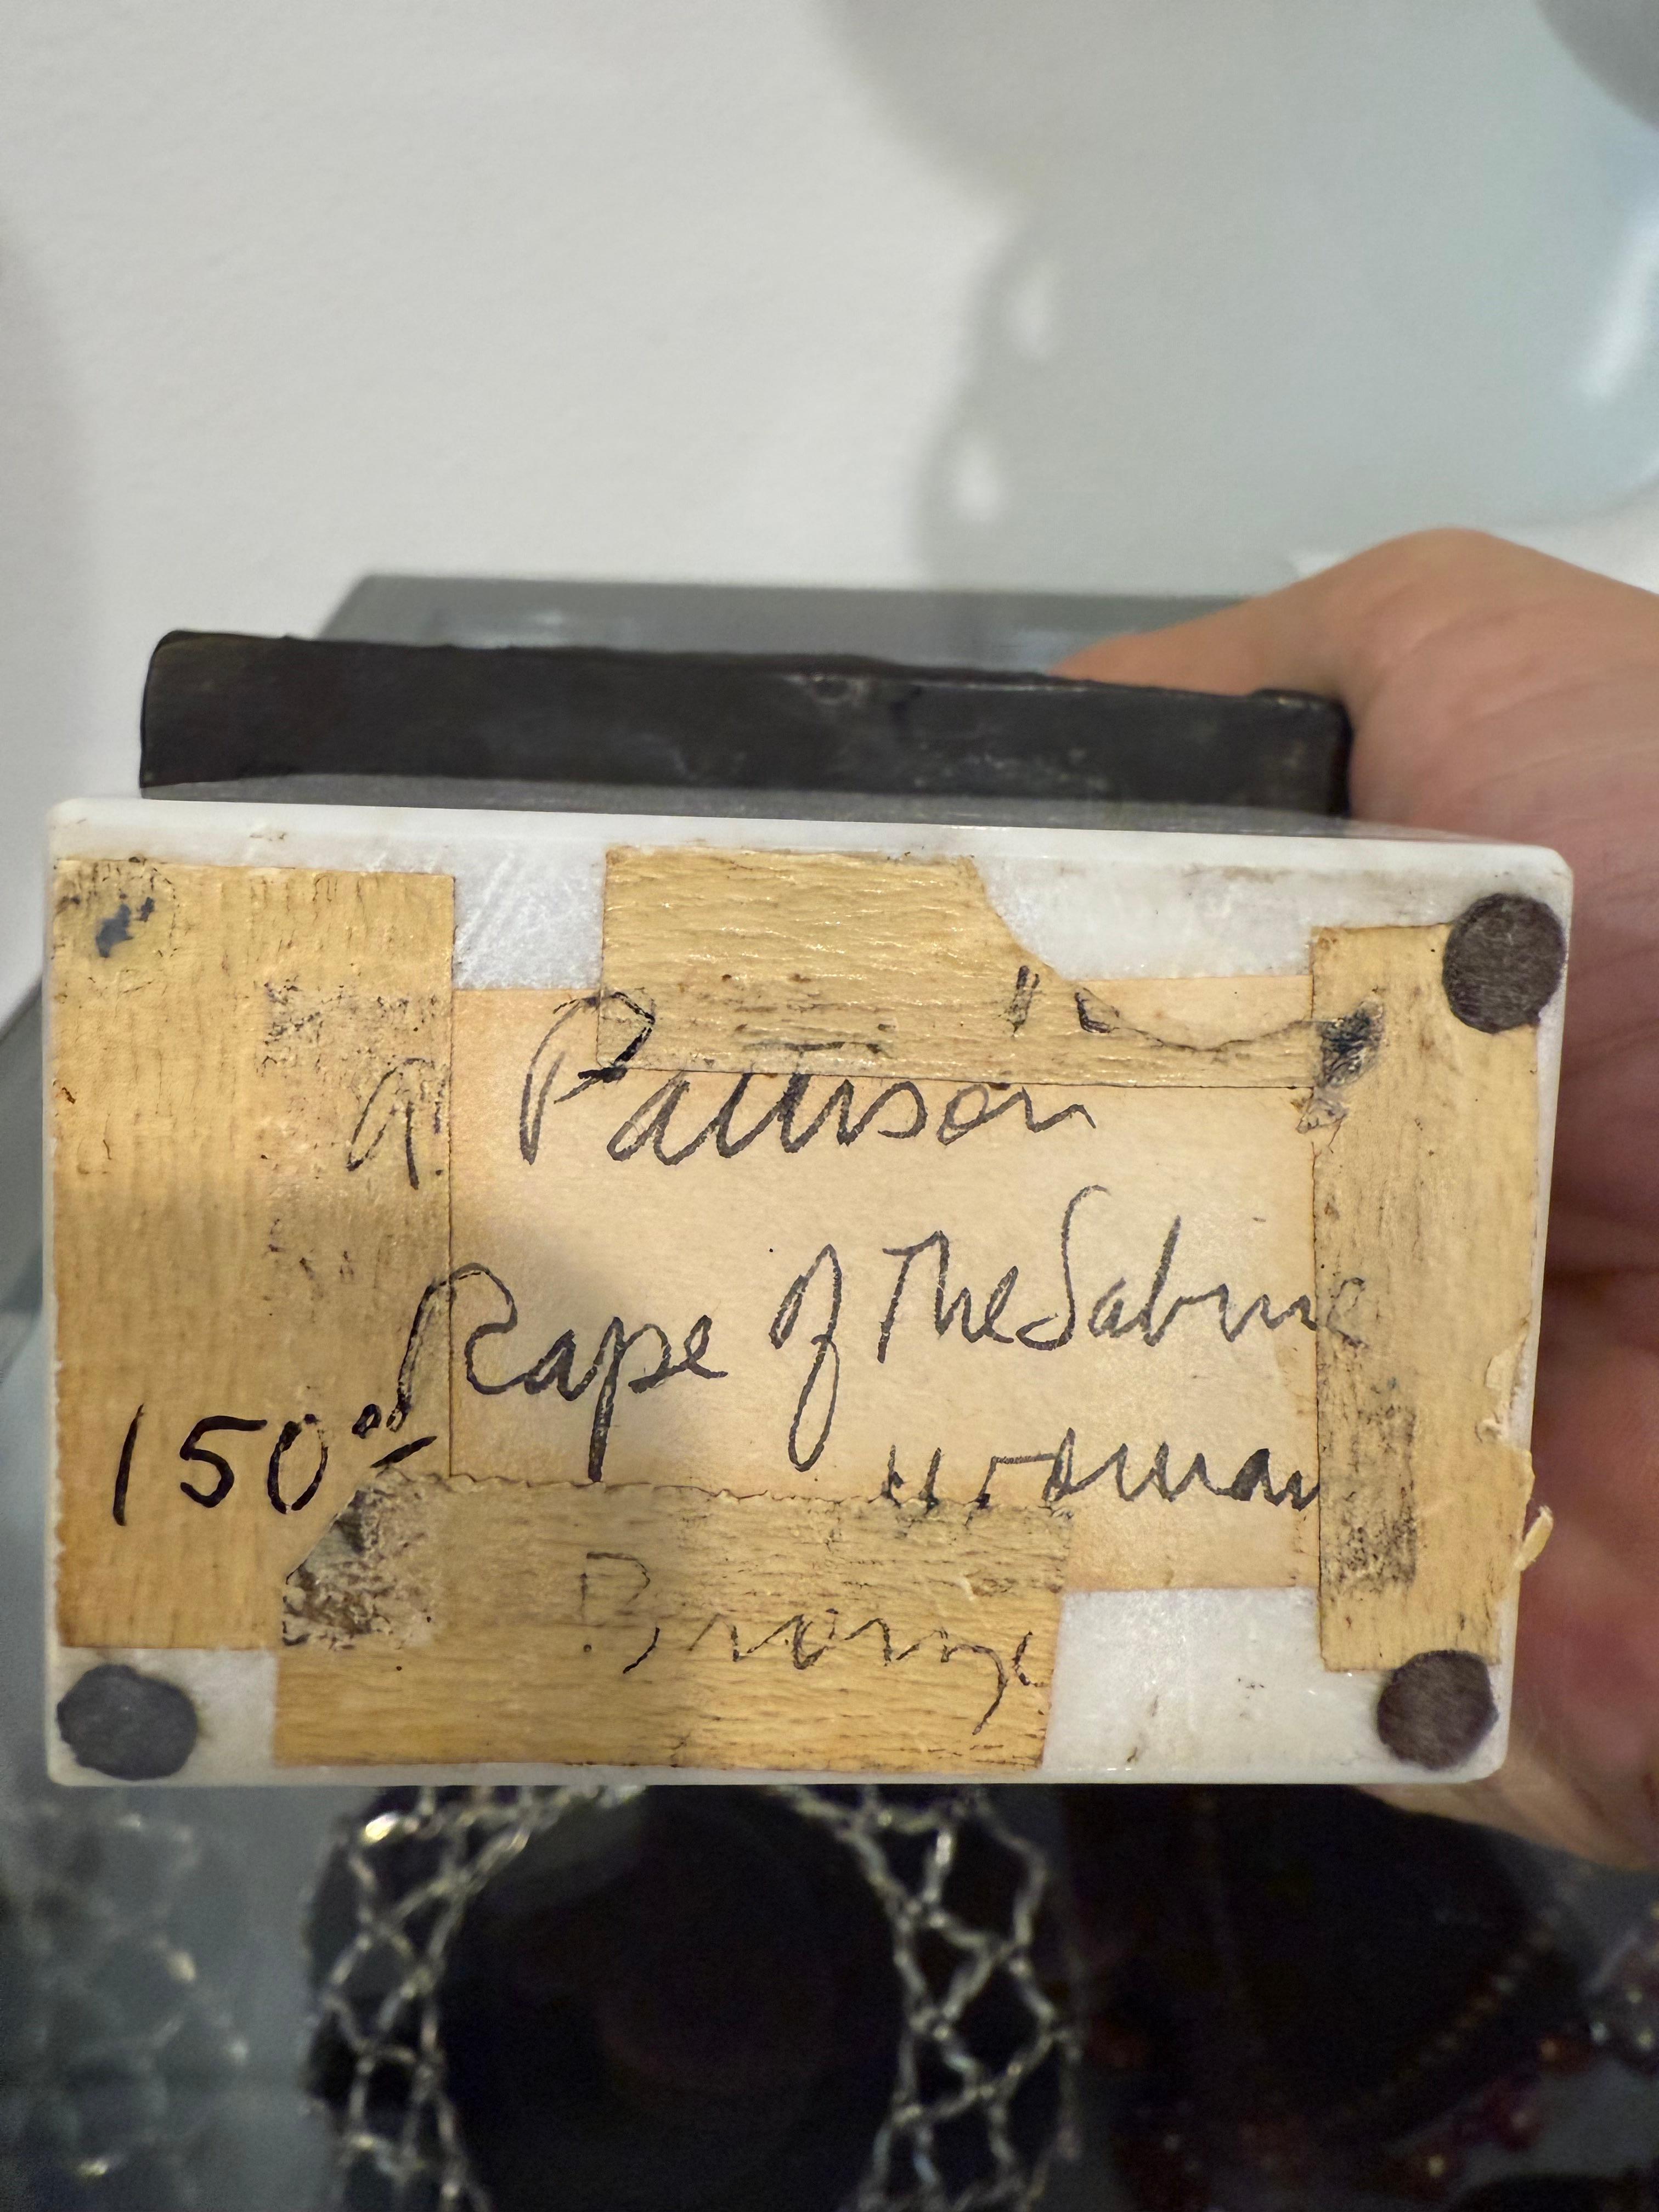 A. Pattison
Rape of The Sabine
150.00
Woman
Bronze